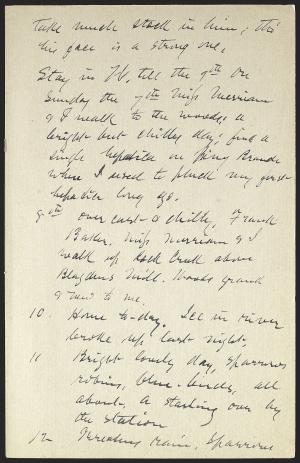 take much stock in him; tho'
his face is a strong one.
Stay in W. till the 9th. On
Sunday the 7th Miss Merriam
& I walk to the woods; a
bright but chilly day; find a
single hepatica on Piny Branch
where I used to pluck my first
hepatica long ago.
8th over cast & chilly, Frank
Baker, Miss Merriam & I
walk up Rock Creek above
Blagdens Mill. Woods grand
& new to me.
10. Home to-day. Ice in river
broke up last night.
11 Bright lovely day, Sparrows
robins, blue-birds, all
about. A starling over by
the station
12 Threatens rain, Sparrows